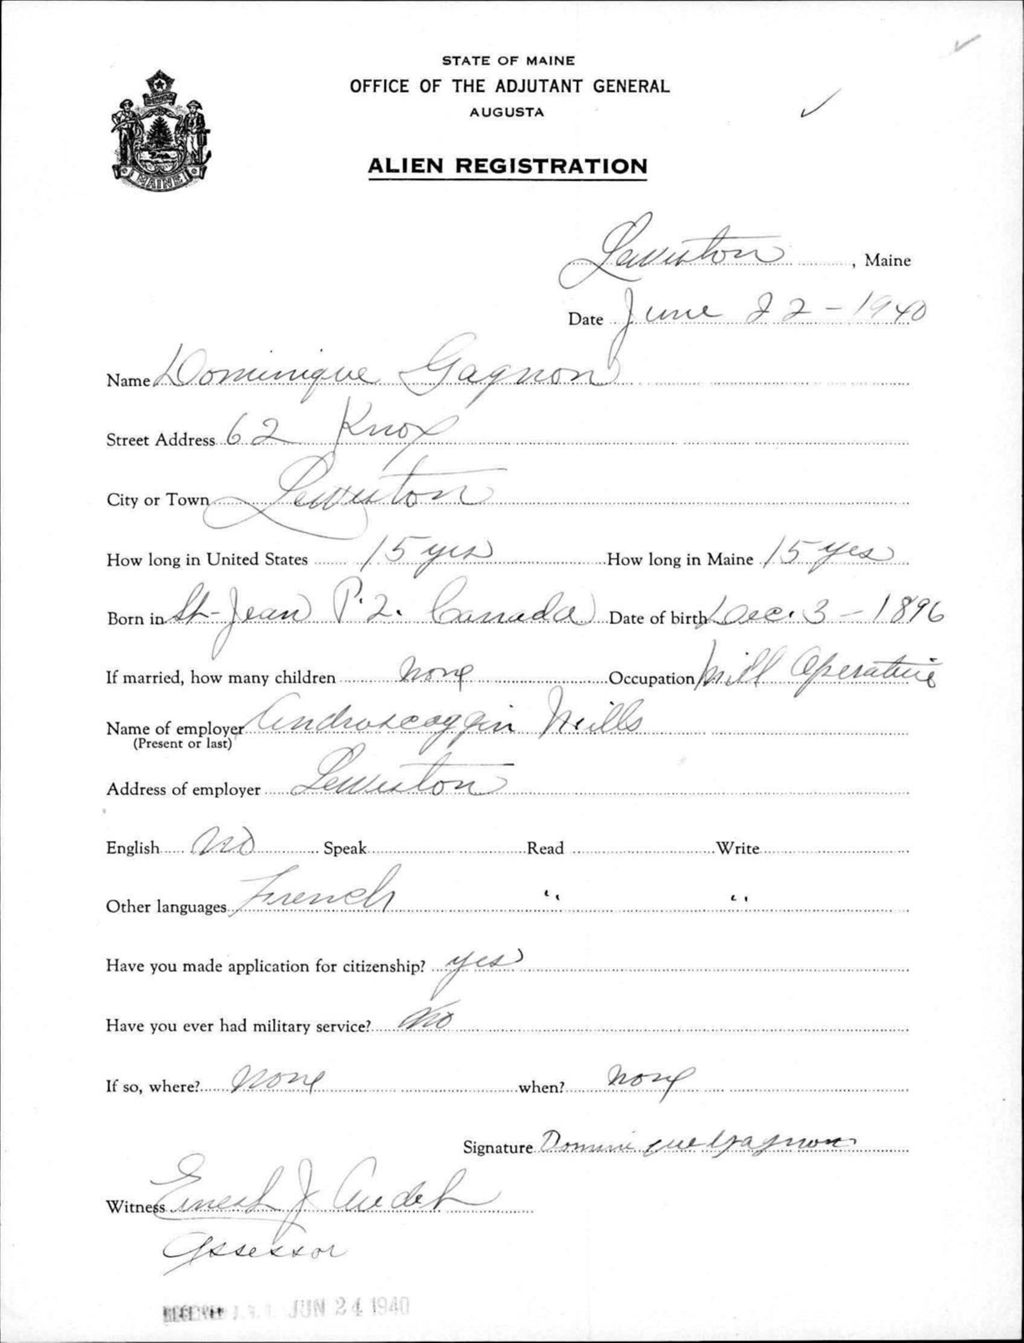 STATE OF MAINE
OFFICE OF THE ADJUTANT GENERAL
AUGUSTA
ALIEN REGISTRATION
MAINE
Lewiston, Maine
Date June 22-1940
Name Dominique Gagnon
Street Address 62 Knox
City or Town Lewiston
How long in United States 15 yrs How long in Maine 15 yrs
Born in St-Jean P.Q. Canada Date of birth Dec. 3-1896
If married, how many children none Occupation Mill Operative
Name of employer Androscoggin Mills
(Present or last)
Address of employer Lewiston
English No Speak Read Write
Other languages French " "
Have you made application for citizenship? yes
Have you ever had military service? No
If so, where? none when? none
Signature Dominique Gagnon
Witness Ernest J Audet
Assessor
RECEIVED JUN 24 1940